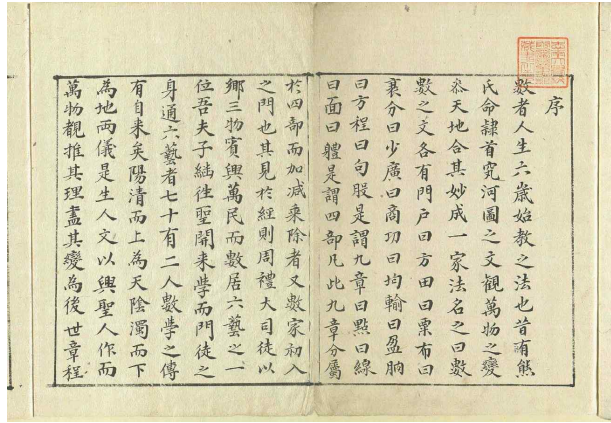 序
數者人生六歲始教之法也昔有熊
氏命隸首究河圖之文觀萬物之變
叅天地合其妙成一家法名之曰數
數之文各有門户曰方田曰粟布曰
衰分曰少廣曰商功曰均輸曰盈朒
曰方程曰句股是謂九章曰點曰線
曰面曰體是謂四部凡此九章分屬
於四部而加减乘除者又數家初入
之門也其見於經則周禮大司徒以
鄉三物賓興萬民而數居六藝之一
位吾夫子繼徃聖開来學而門徒之
身通六藝者七十有二人數學之傳
有自来矣陽清而上為天陰濁而下
為地兩儀是生人文以興聖人作而
萬物覩推其理盡其變為後世章程